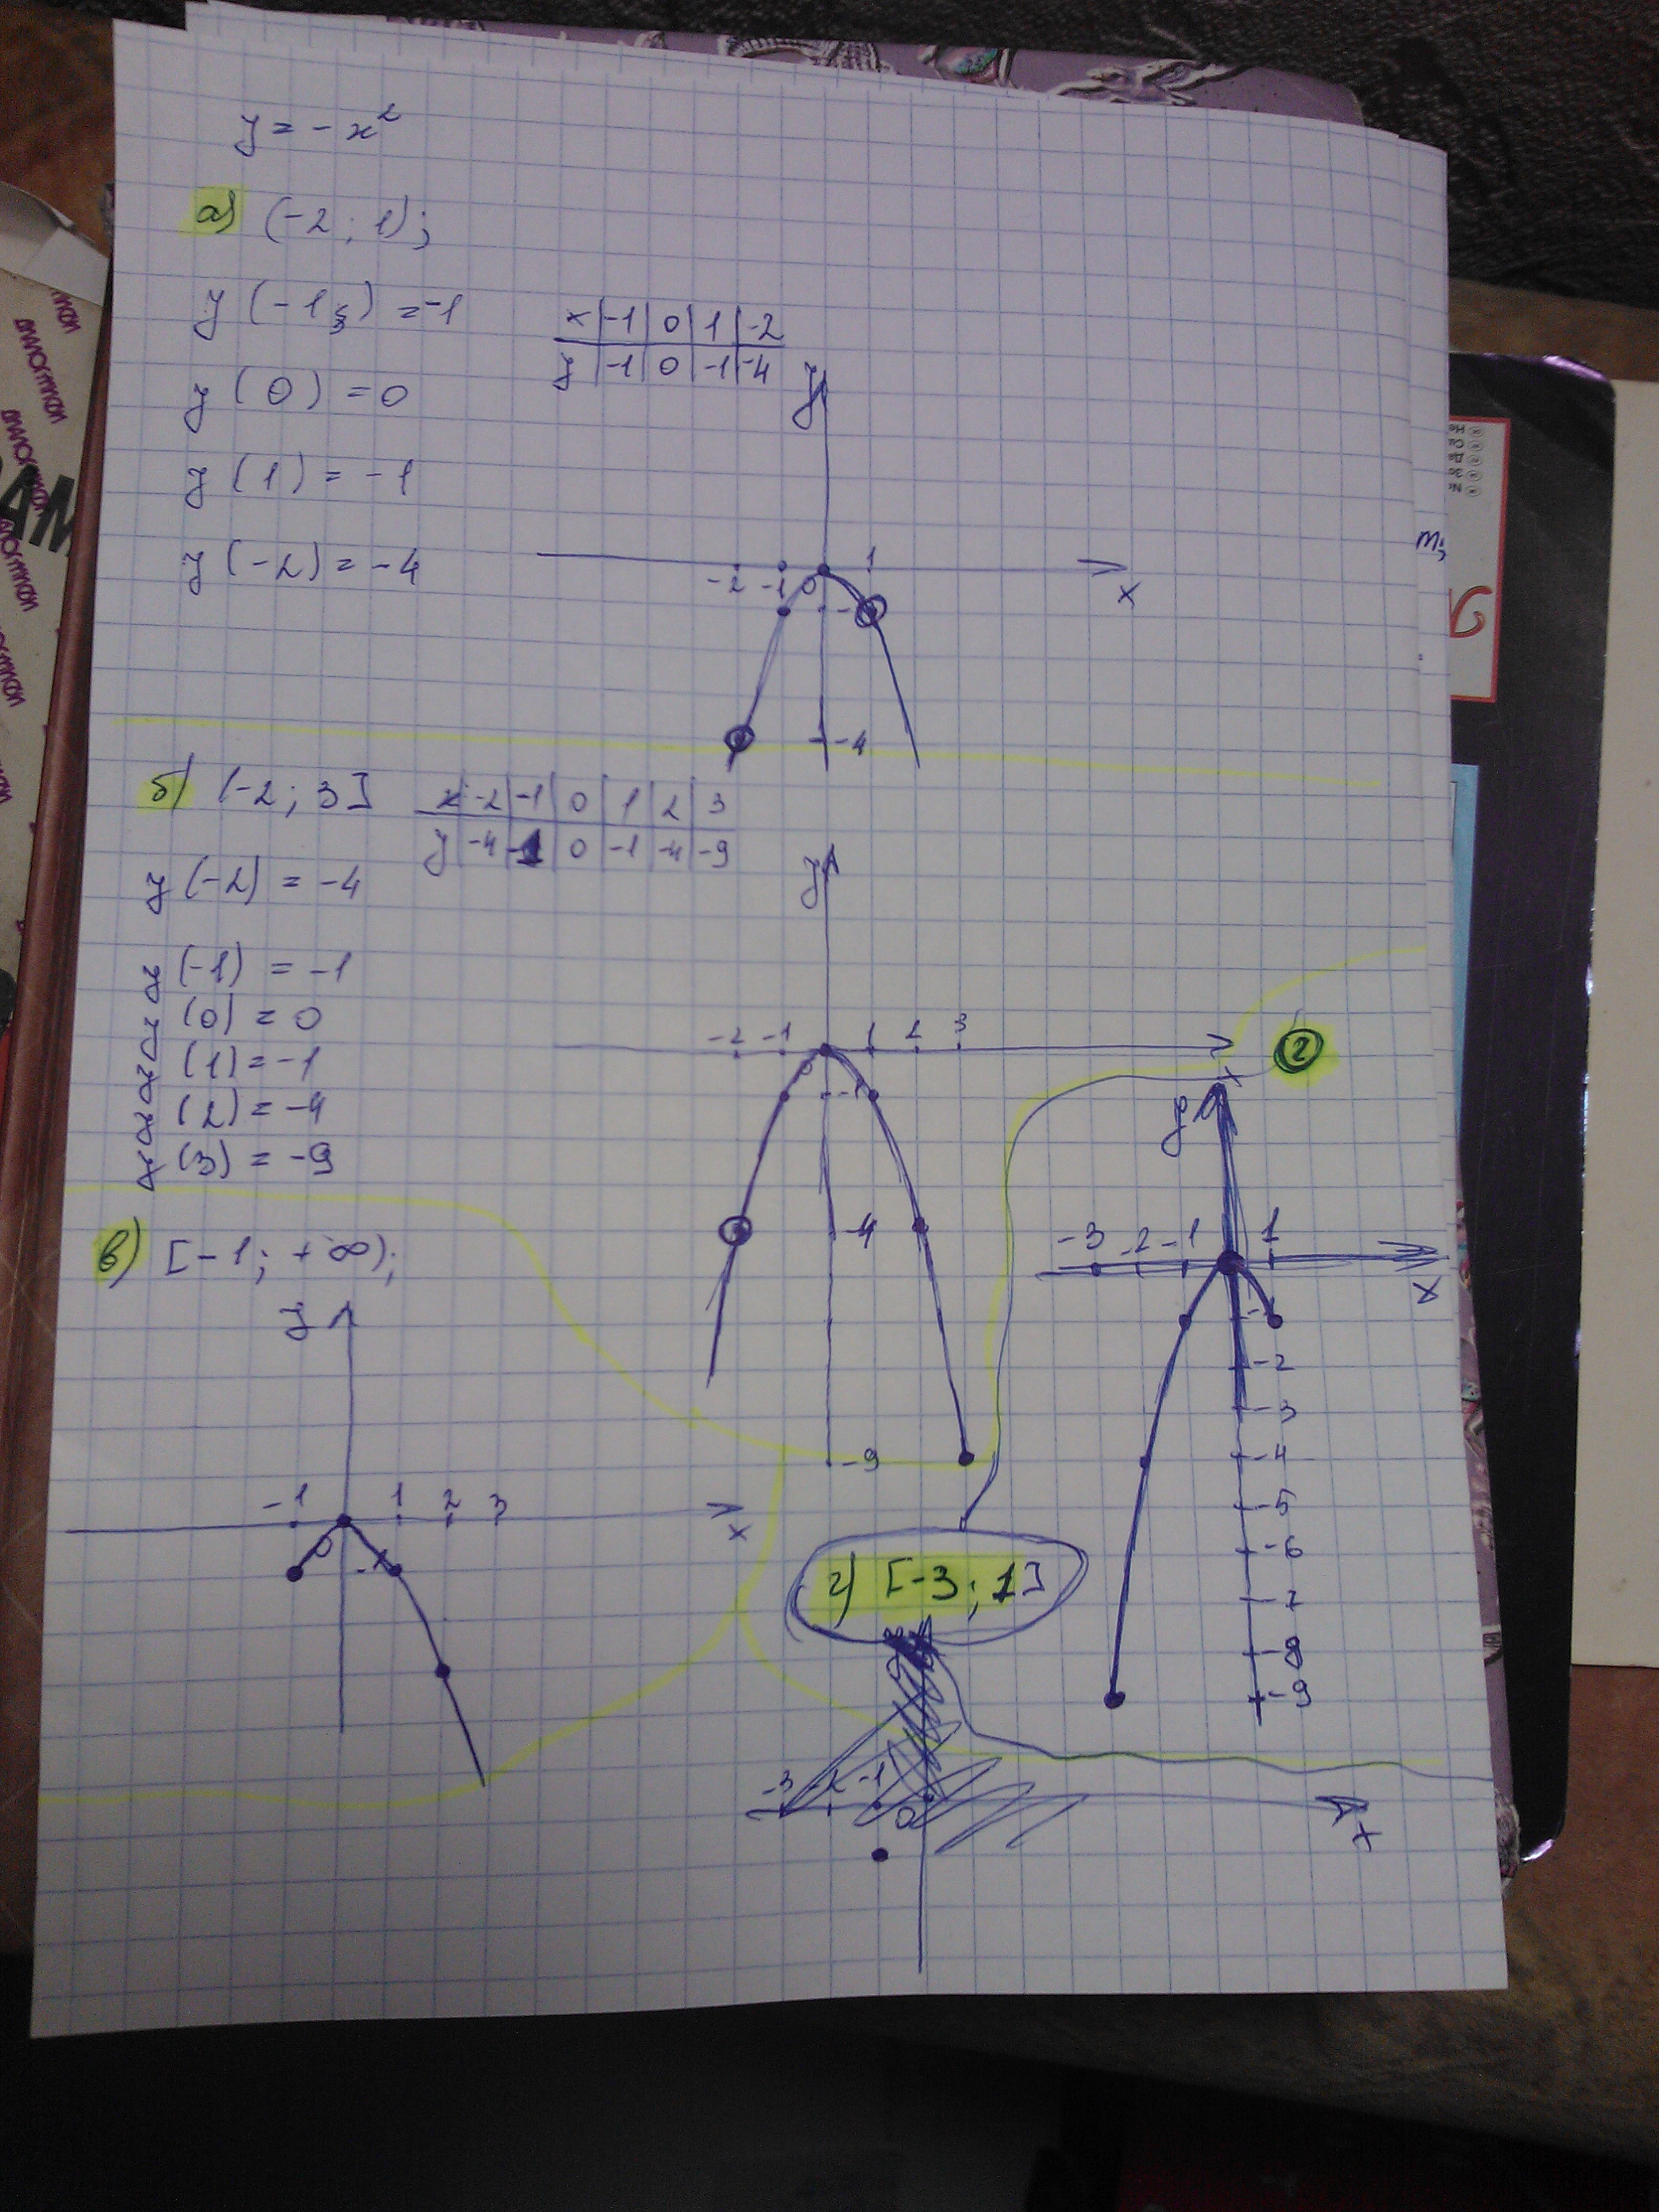 y = -x²
а) (-2 ; 1);
y (-1) = -1
x | -1 | 0 | 1 | -2
y | -1 | 0 | -1 | -4
y (0) = 0
y (1) = -1
y (-2) = -4
y
-2 -1 0 1
x
-4
б) (-2 ; 3]
x | -2 | -1 | 0 | 1 | 2 | 3
y | -4 | -1 | 0 | -1 | -4 | -9
y (-2) = -4
y (-1) = -1
y (0) = 0
y (1) = -1
y (2) = -4
y (3) = -9
y
-2 -1 0 1 2 3
x
-1
-4
-9
г
y
-3 -2 -1 1
x
-2
-3
-4
-5
-6
-7
-8
-9
в) [-1 ; +∞);
y
-1 0 1 2 3
x
-1
г) [-3 ; 1]
-3 -2 -1
0
x